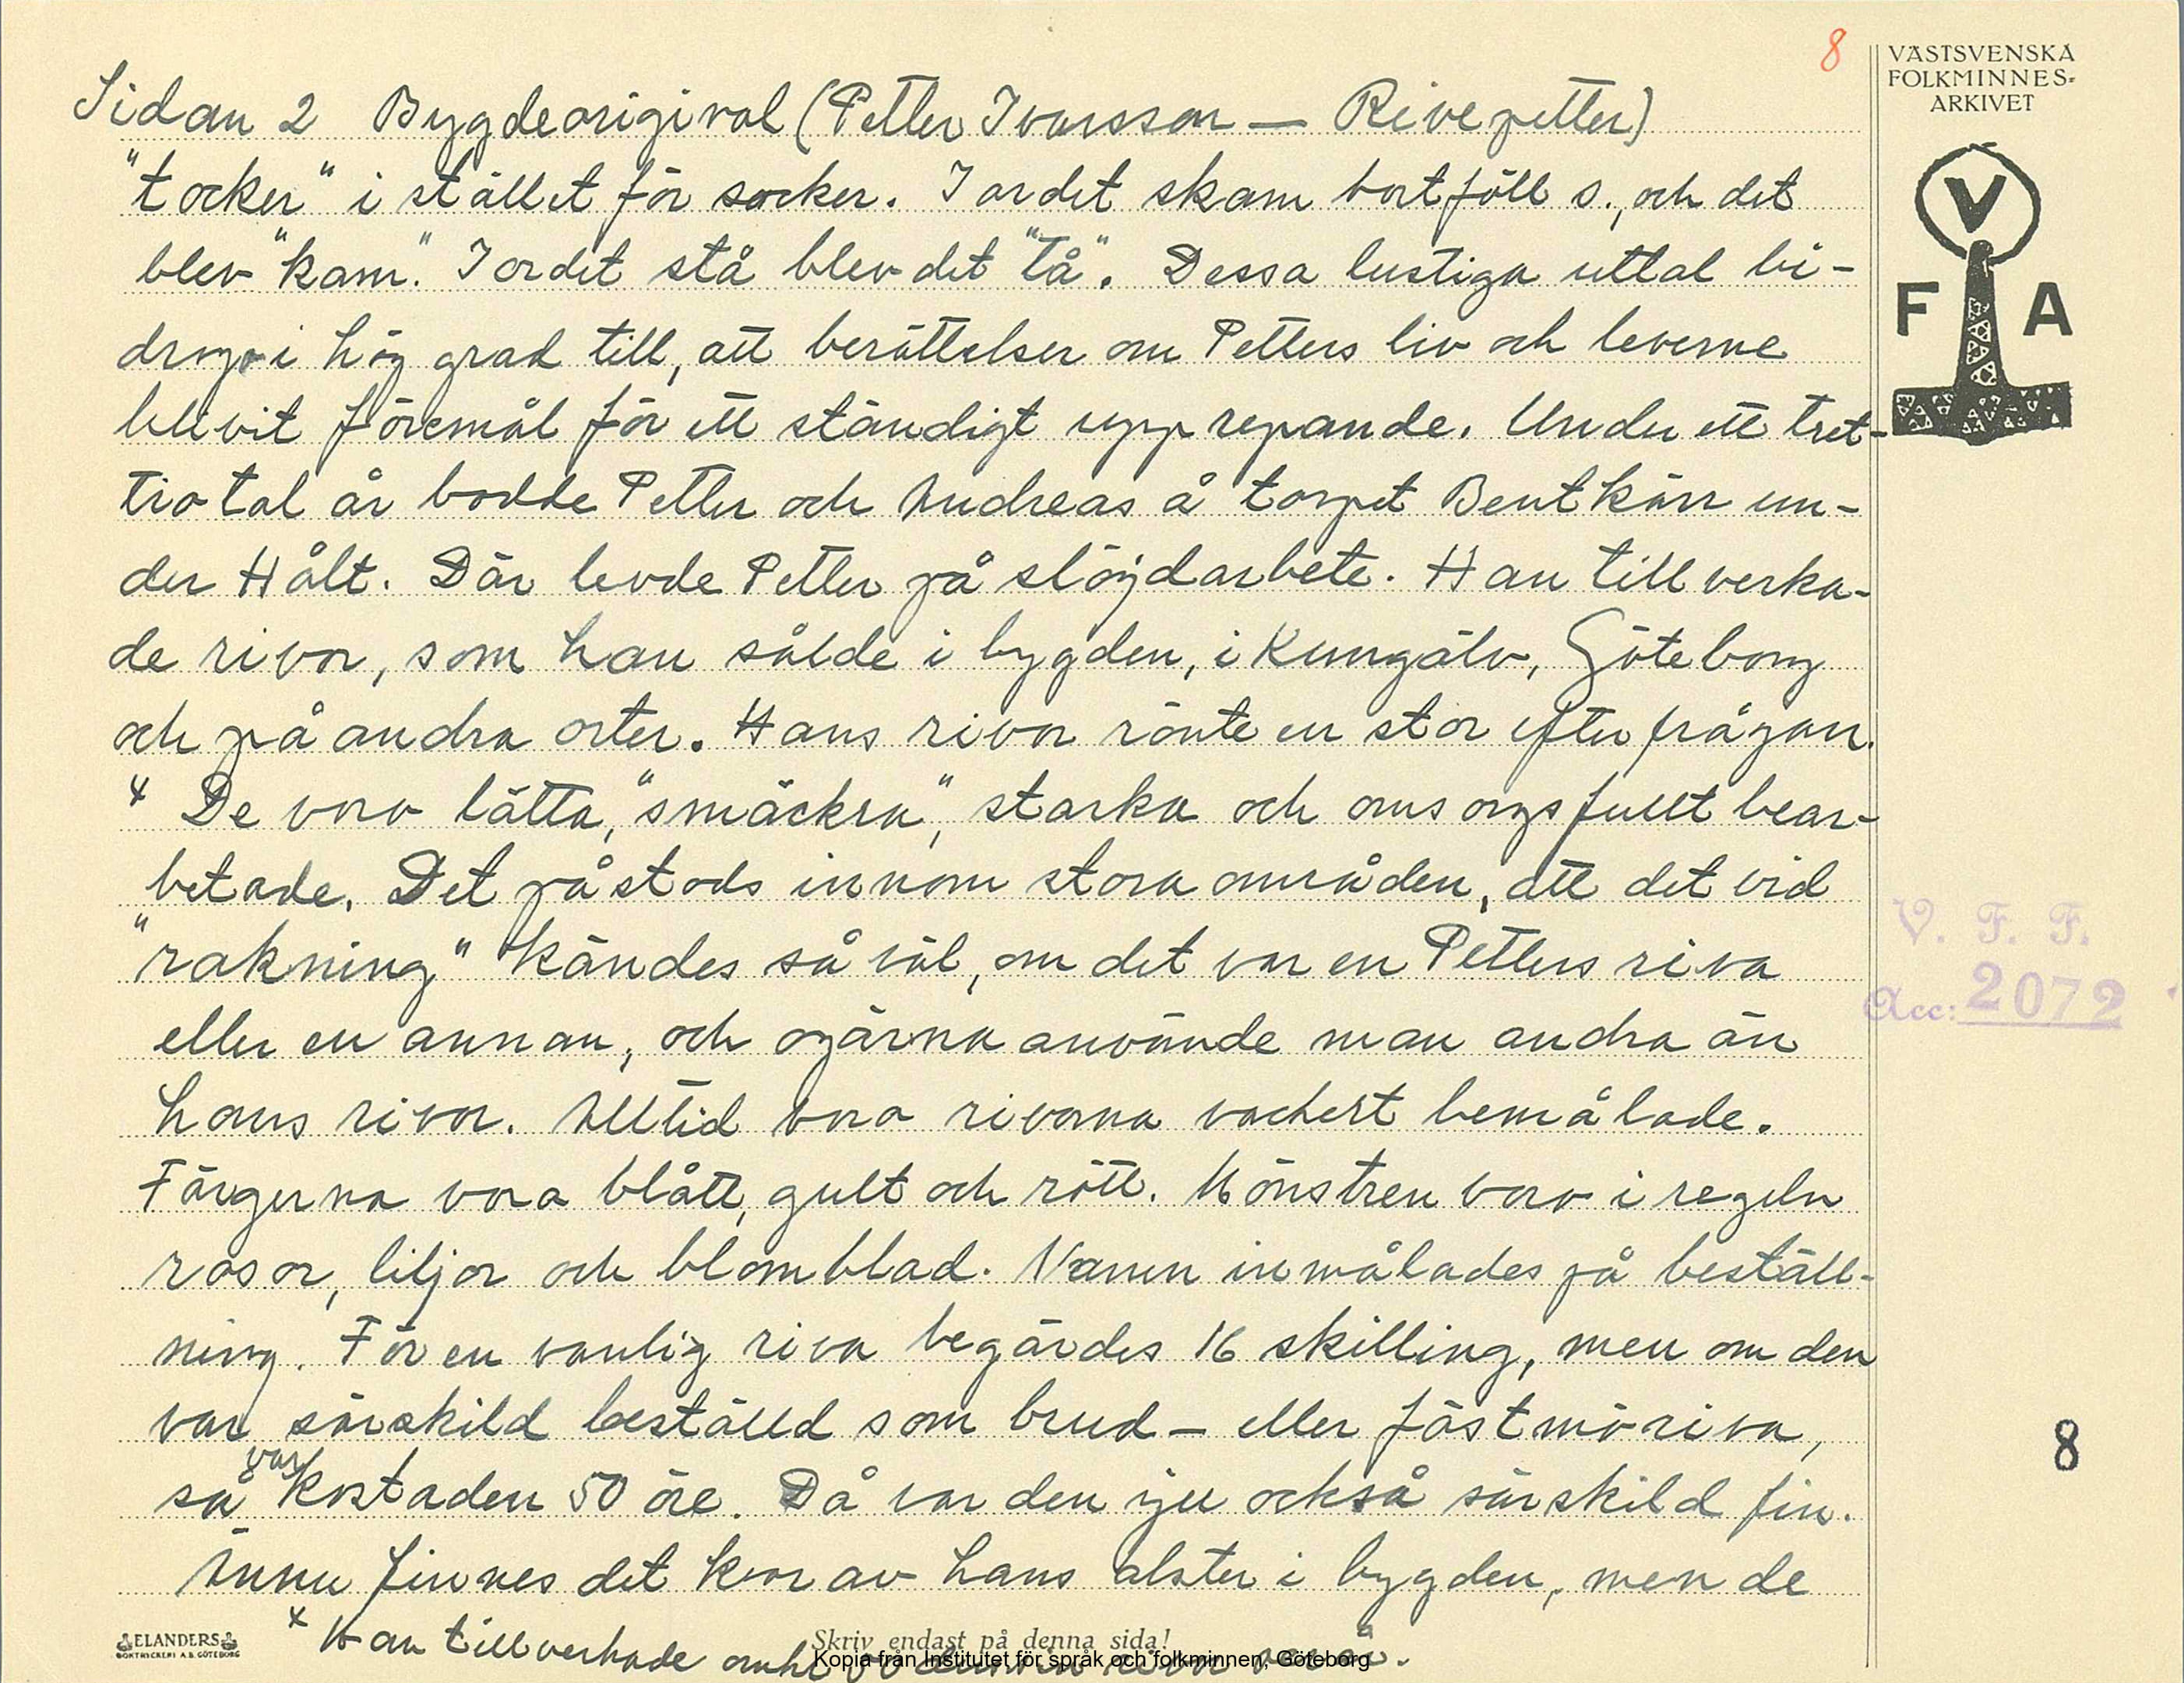 8
VÄSTSVENSKA
FOLKMINNES-
ARKIVET
V
F A
Sidan 2 Bygdeoriginal (Petter Ivarsson — Rivepetter)
"tocker" i stället för socker. I ordet skam bortföll s., och det
blev "kam". I ordet stå blev det "tå". Dessa lustiga uttal bi-
drogo i hög grad till, att berättelser om Petters liv och leverne
blivit föremål för ett ständigt upprepande. Under ett tret-
tiotal år bodde Petter och Andreas å torpet Bentkärr un-
der Hålt. Där levde Petter på slöjdarbete. Han tillverka-
de rivor, som han sålde i bygden, i Kungälv, Göteborg
och på andra orter. Hans rivor rönte en stor efterfrågan.
x De voro lätta, "smäckra", starka och omsorgsfullt bear-
betade. Det påstods innom stora områden, att det vid
"rakning" kändes så väl, om det var en Petters riva
eller en annan, och ogärna använde man andra än
hans rivor. Alltid voro rivorna vackert bemålade.
Färgerna voro blått, gult och rött. Mönstren voro i regeln
rosor, liljor och blomblad. Namn inmålades på beställ-
ning. För en vanlig riva begärdes 16 skilling, men om den
var särskild beställd som brud- eller fästmöriva,
så var kostaden 50 öre. Då var den ju också särskild fin.
Ännu finnes det kvar av hans alster i bygden, men de
x Han tillverkade
V. F. F.
Acc: 2072
8
ELANDERS
BOKTRYCKERI A.B. GÖTEBORG
Skriv endast på denna sida!
Kopia från Institutet för språk och folkminnen, Göteborg